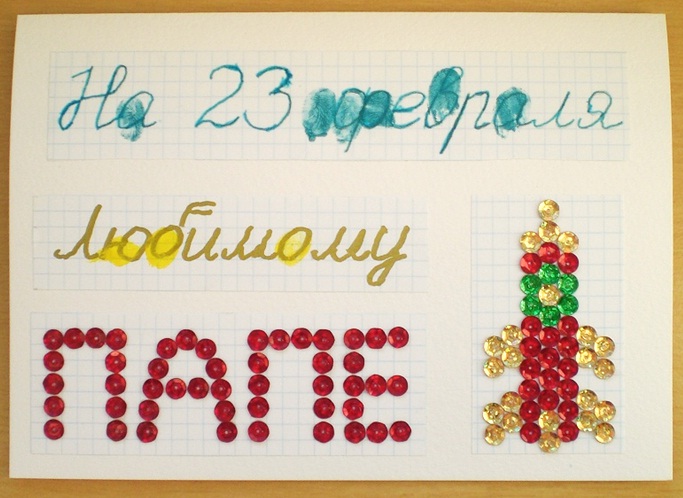 На 23 февраля
Любимому
ПАПЕ